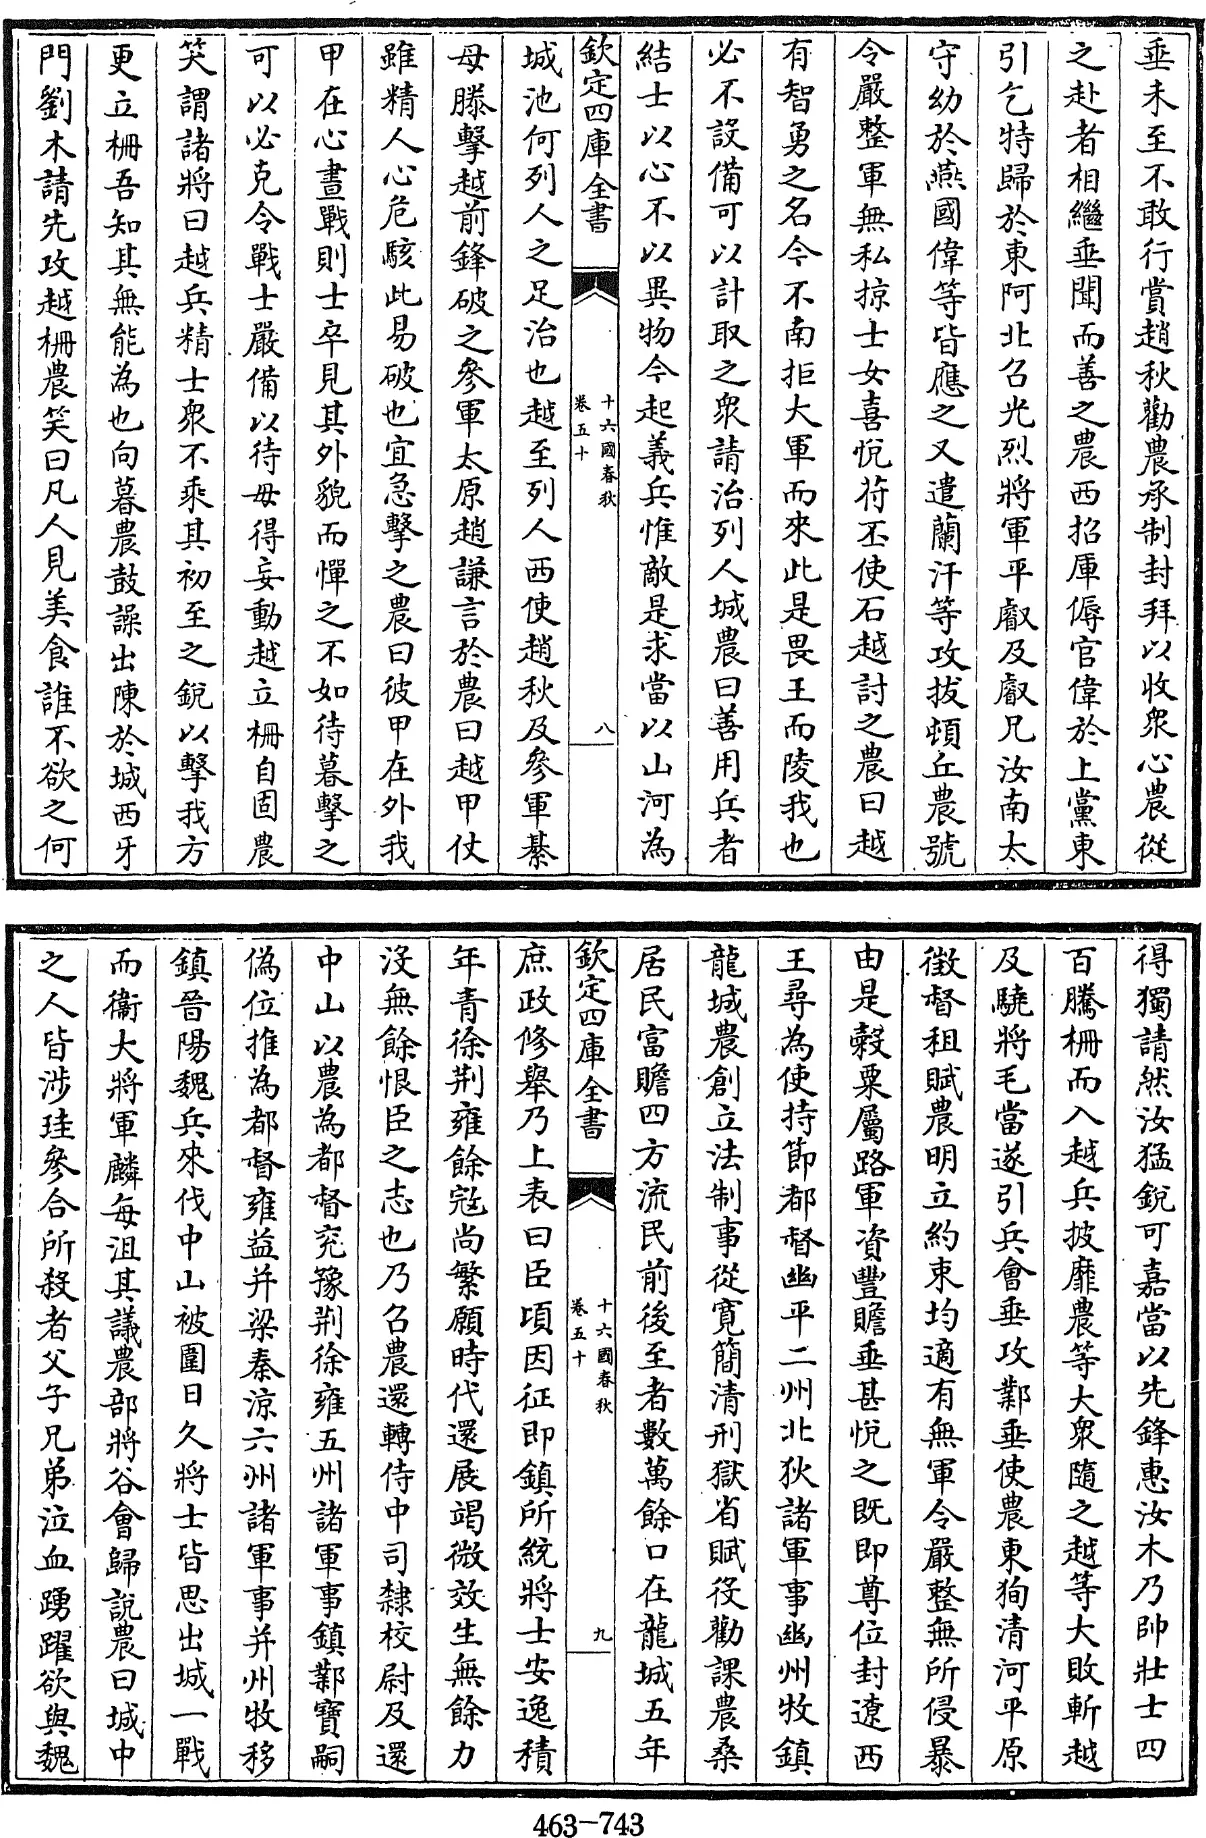 垂未至不敢行賞趙秋勸農承制封拜以收衆心農從
之赴者相繼垂聞而善之農西招厙傉官偉於上黨東
引乞特歸於東阿北召光烈將軍平叡及叡兄汝南太
守幼於燕國偉等皆應之又遣蘭汗等攻拔頓丘農號
令嚴整軍無私掠士女喜悅苻丕使石越討之農曰越
有智勇之名今不南拒大軍而來此是畏王而陵我也
必不設備可以計取之衆請治列人城農曰善用兵者
結士以心不以異物今起義兵惟敵是求當以山河為
欽定四庫全書
十六國春秋
卷五十
八
城池何列人之足治也越至列人西使趙秋及參軍綦
母滕擊越前鋒破之參軍太原趙謙言於農曰越甲仗
雖精人心危駭此易破也宜急擊之農曰彼甲在外我
甲在心晝戰則士卒見其外貌而憚之不如待暮擊之
可以必克令戰士嚴備以待毋得妄動越立柵自固農
笑謂諸將曰越兵精士衆不乘其初至之銳以擊我方
更立柵吾知其無能為也向暮農鼓譟出陳於城西牙
門劉木請先攻越柵農笑曰凡人見美食誰不欲之何
得獨請然汝猛銳可嘉當以先鋒惠汝木乃帥壯士四
百騰柵而入越兵披靡農等大衆隨之越等大敗斬越
及驍將毛當遂引兵會垂攻鄴垂使農東狥清河平原
徵督租賦農明立約束均適有無軍令嚴整無所侵暴
由是穀粟屬路軍資豐贍垂甚悅之既即尊位封遼西
王尋為使持節都督幽平二州北狄諸軍事幽州牧鎮
龍城農創立法制事從寛簡清刑獄省賦役勸課農桑
居民富贍四方流民前後至者數萬餘口在龍城五年
欽定四庫全書
十六國春秋
卷五十
九
庶政修舉乃上表曰臣頃因征即鎮所統將士安逸積
年青徐荆雍餘冦尚繁願時代還展竭微效生無餘力
没無餘恨臣之志也乃召農還轉侍中司隸校尉及還
中山以農為都督兖豫荆徐雍五州諸軍事鎮鄴寶嗣
偽位推為都督雍益并梁秦涼六州諸軍事并州牧移
鎮晉陽魏兵來伐中山被圍日久將士皆思出城一戰
而衞大將軍麟每沮其議農部將谷會歸說農曰城中
之人皆涉珪參合所殺者父子兄弟泣血踴躍欲與魏
463-743